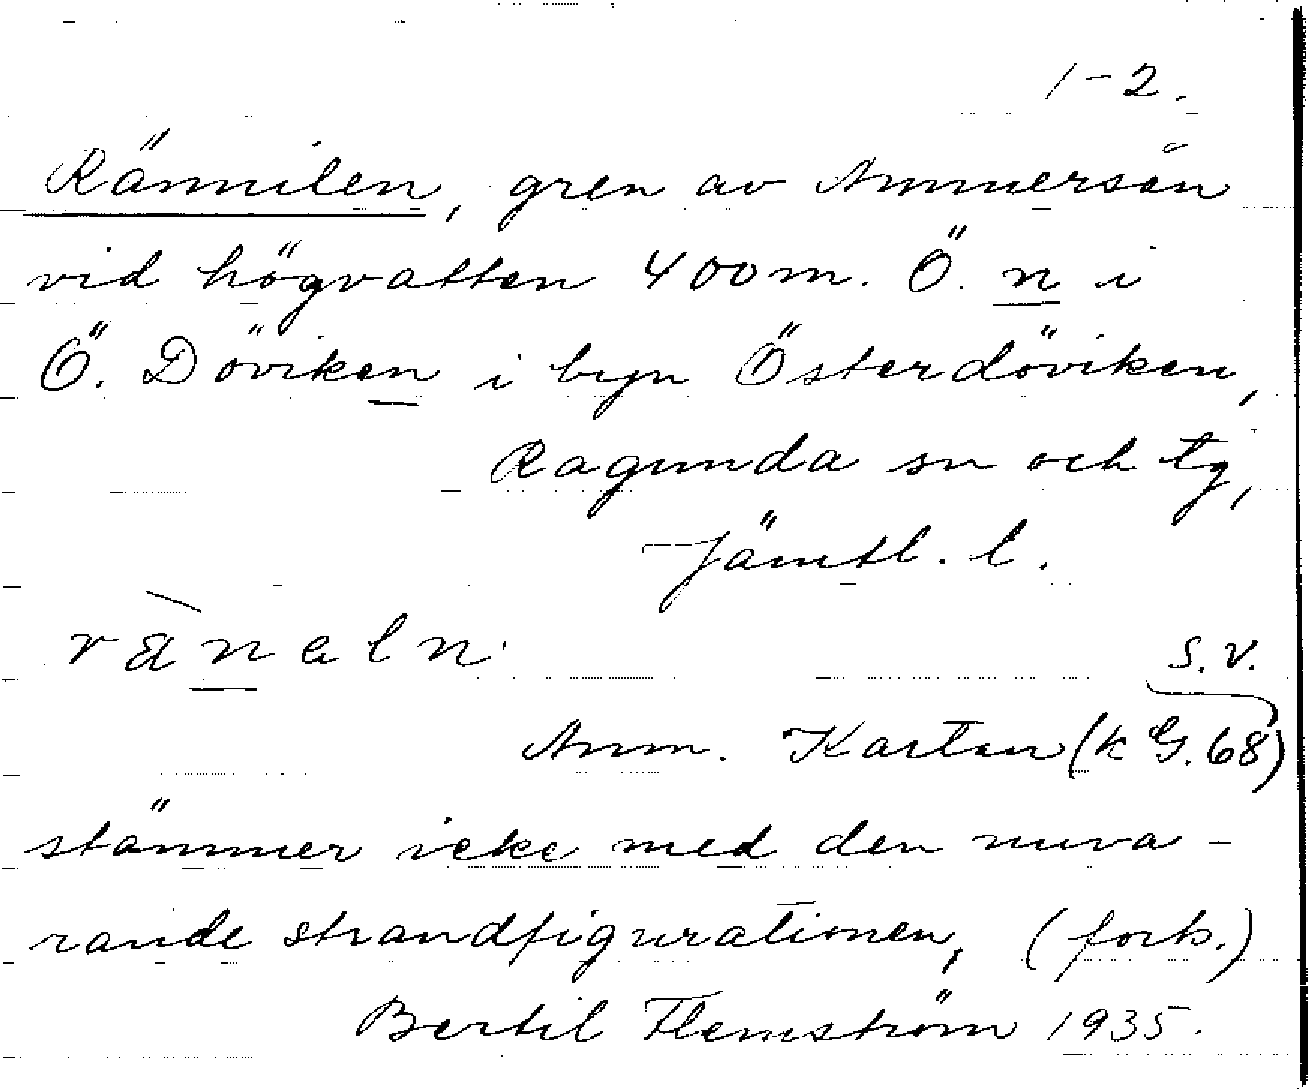 1-2.
Rännilen, gren av Ammerån
vid högvatten 400 m. Ö. n i
Ö. Döviken i byn Österdöviken,
Ragunda sn och tg,
Jämtl. l.
rànaln
s.v.
Anm. Kartan (k G. 68)
stämmer icke med den nuva-
rande strandfigurationen, (forts.)
Bertil Flemström 1935.